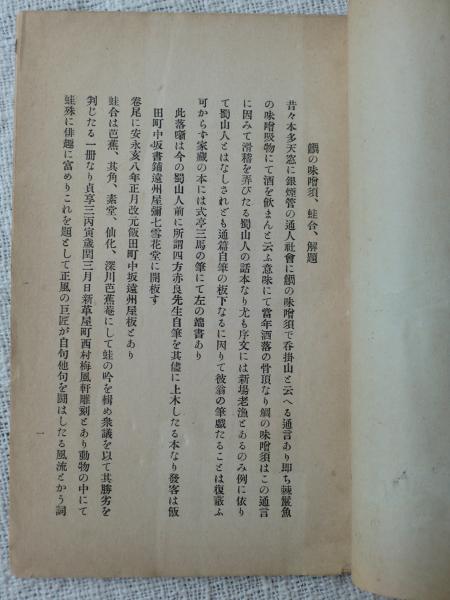 鯛の味噌須、蛙合、解題
昔々本多天窓に銀煙管の通人社會に鯛の味噌須で呑掛山と云へる通言あり即ち棘鬣魚
の味噌吸物にて酒を飲まんと云ふ意味にて當年洒落の骨頂なり鯛の味噌須はこの通言
に因みて滑稽を弄びたる蜀山人の話本なり尤も序文には新場老漁とあるのみ例に依り
て蜀山人とはなしされども通篇自筆の板下なるに因りて彼翁の筆戯たることは復蔽ふ
可からず家蔵の本には式亭三馬の筆にて左の端書あり
此落噺は今の蜀山人前に所謂四方赤良先生自筆を其儘に上木したる本なり發客は飯
田町中坂書鋪遠州屋彌七雪花堂に開板す
卷尾に安永亥八年正月改元飯田町中坂遠州屋板とあり
蛙合は芭蕉、其角、素堂、仙化、深川芭蕉菴にして蛙の吟を輯め衆議を以て其勝劣を
判じたる一冊なり貞享三丙寅歳閏三月日新革屋町西村梅風軒雕刻とあり動物の中にて
蛙殊に俳趣に富めりこれを題として正風の巨匠が自句他句を鬪はしたる風流とかう詞
一